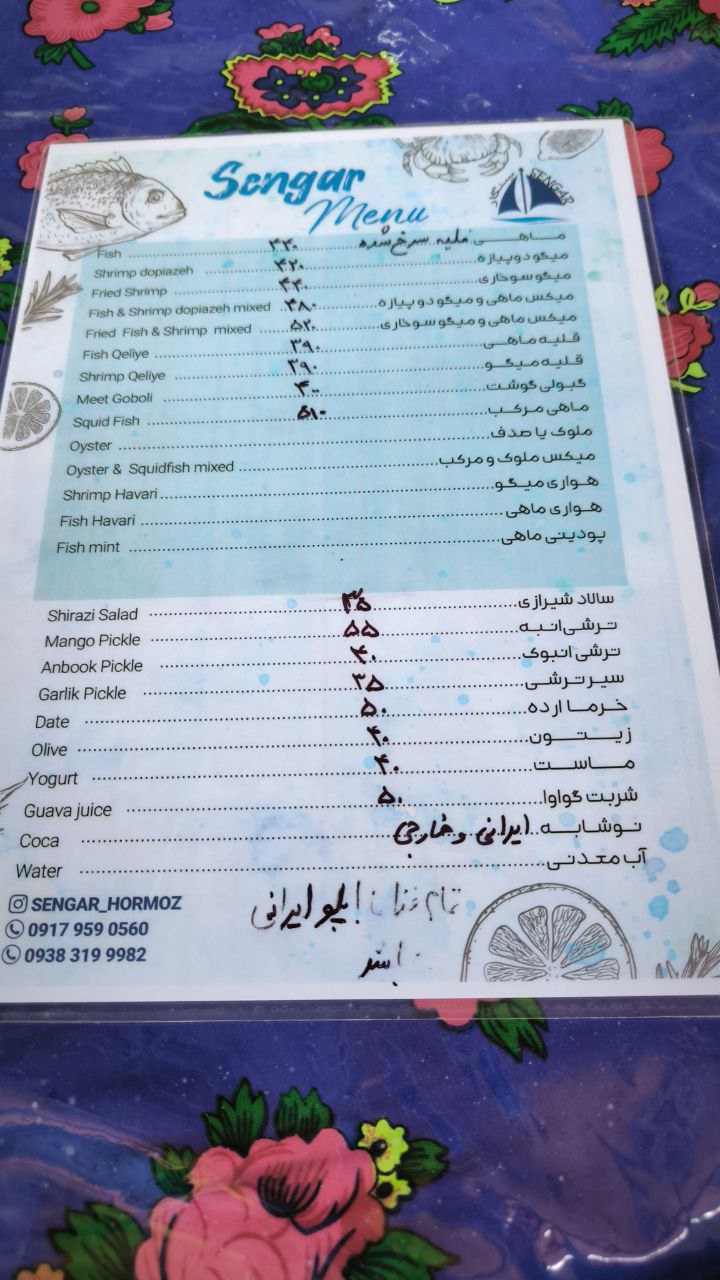 Sengar
Menu
SENGAR
Fish ۴۴۰ ماهی سرخ شده
Shrimp dopiazeh ۴۲۰ میگو دو پیازه
Fried Shrimp ۴۴۰ میگو سوخاری
Fish & Shrimp dopiazeh mixed ۴۸۰ میکس ماهی و میگو دو پیازه
Fried Fish & Shrimp mixed ۵۲۰ میکس ماهی و میگو سوخاری
Fish Qeliye ۳۹۰ قلیه ماهی
Shrimp Qeliye ۳۹۰ قلیه میگو
Meet Goboli گبولی گوشت
Squid Fish ۵۱۰ ماهی مرکب
Oyster ملوک یا صدف
Oyster & Squidfish mixed میکس ملوک و مرکب
Shrimp Havari هواری میگو
Fish Havari هواری ماهی
Fish mint پودینی ماهی
Shirazi Salad سالاد شیرازی
Mango Pickle ۵۵ ترشی انبه
Anbook Pickle ۴۰ ترشی انبوک
Garlik Pickle سیر ترشی
Date ۵۰ خرما ارده
Olive ۴۰ زیتون
Yogurt ۴۰ ماست
Guava juice ۵۰ شربت گواوا
Coca ایرانی و خارجی نوشابه
Water آب معدنی
SENGAR_HORMOZ
0917 959 0560
0938 319 9982
تمام ایرانی